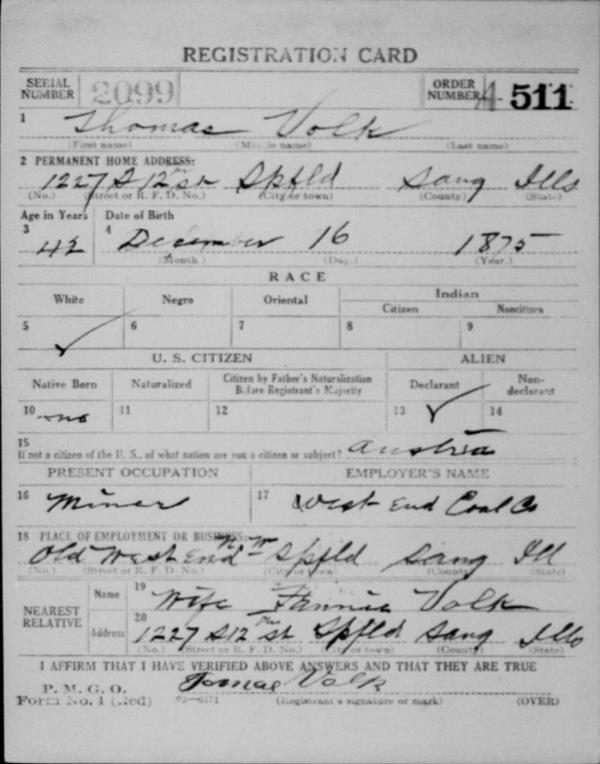 REGISTRATION CARD
SERIAL NUMBER 2099 ORDER NUMBER A 511
1 Thomas Volk
(First name) (Middle name) (Last name)
2 PERMANENT HOME ADDRESS:
1227 S 12th St Spfld Sang Ills
(No.) (Street or R. F. D. No.) (City or town) (County) (State)
Age in Years Date of Birth
3 42 4 December 16 1875
(Month.) (Day.) (Year.)
RACE
White Negro Oriental Indian
Citizen Noncitizen
5 ✓ 6 7 8 9
U. S. CITIZEN ALIEN
Native Born Naturalized Citizen by Father's Naturalization Before Registrant's Majority Declarant Non-declarant
10 no 11 12 13 ✓ 14
15
If not a citizen of the U. S., of what nation are you a citizen or subject? Austria
PRESENT OCCUPATION EMPLOYER'S NAME
16 Miner 17 West End Coal Co
18 PLACE OF EMPLOYMENT OR BUSINESS:
Old West End Spfld Sang Ill
(No.) (Street or R. F. D. No.) (City or town) (County) (State)
NEAREST RELATIVE Name 19 Wife Fannie Volk
Address 20 1227 S 12th St Spfld Sang Ills
(No.) (Street or R. F. D. No.) (City or town) (County) (State)
I AFFIRM THAT I HAVE VERIFIED ABOVE ANSWERS AND THAT THEY ARE TRUE
P. M. G. O. Tomas Volk
Form No. 1 (Red) 03-6171 (Registrant's signature or mark) (OVER)